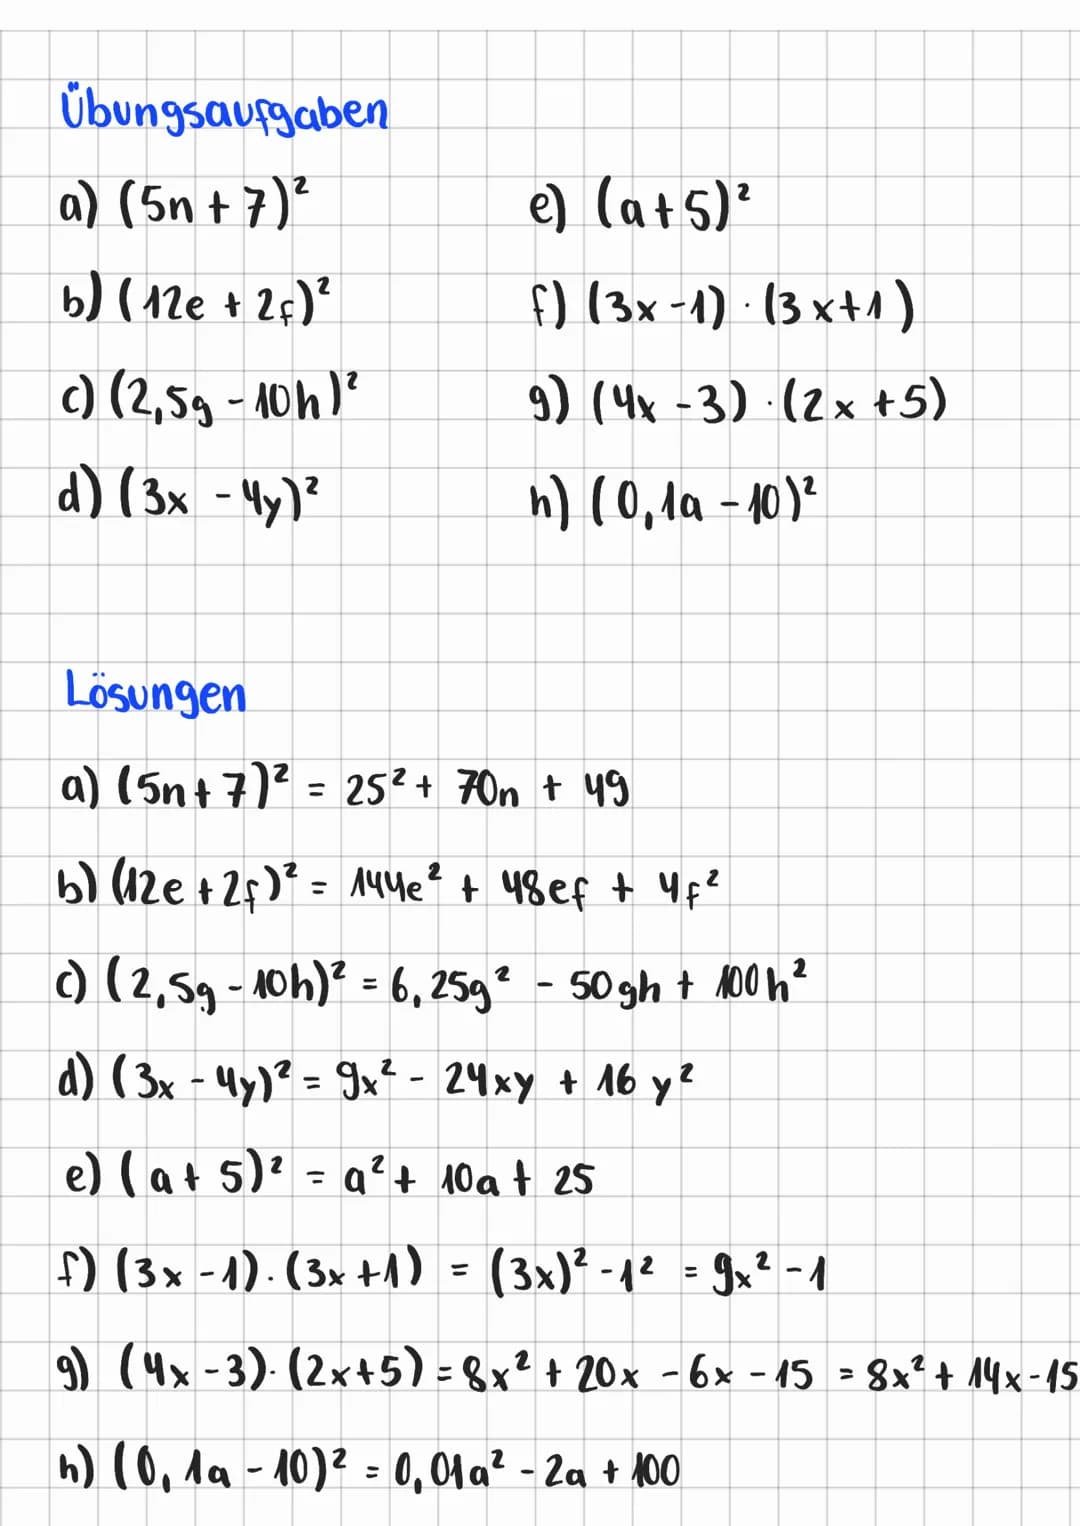 Übungsaufgaben
a) (5n + 7)²
e) (a + 5)²
b) (12e + 2f)²
f) (3x - 1) · (3x + 1)
c) (2,5g - 10h)²
g) (4x - 3) · (2x + 5)
d) (3x - 4y)²
h) (0,1a - 10)²
Lösungen
a) (5n + 7)² = 25² + 70n + 49
b) (12e + 2f)² = 144e² + 48ef + 4f²
c) (2,5g - 10h)² = 6,25g² - 50gh + 100h²
d) (3x - 4y)² = 9x² - 24xy + 16y²
e) (a + 5)² = a² + 10a + 25
f) (3x - 1) · (3x + 1) = (3x)² - 1² = 9x² - 1
g) (4x - 3) · (2x + 5) = 8x² + 20x - 6x - 15 = 8x² + 14x - 15
h) (0,1a - 10)² = 0,01a² - 2a + 100